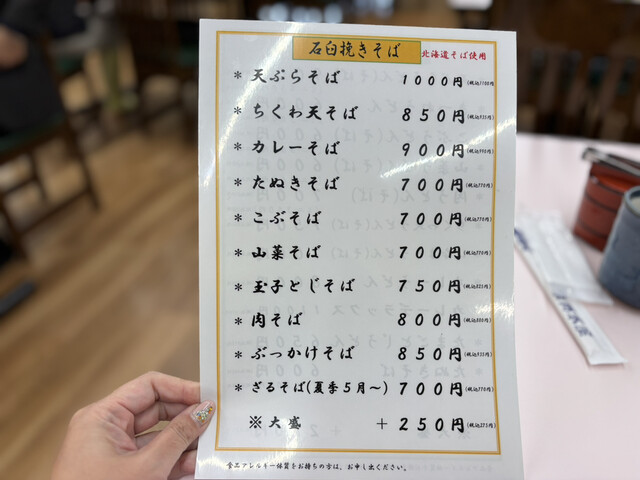 石臼挽きそば 北海道そば使用
* 天ぷらそば 1000円(税込1100円)
* ちくわ天そば 850円(税込935円)
* カレーそば 900円(税込990円)
* たぬきそば 700円(税込770円)
* こぶそば 700円(税込770円)
* 山菜そば 700円(税込770円)
* 玉子とじそば 750円(税込825円)
* 肉そば 800円(税込880円)
* ぶっかけそば 850円(税込935円)
* ざるそば(夏季5月〜) 700円(税込770円)
※ 大盛 + 250円(税込275円)
食品アレルギー体質をお持ちの方は、お申し出ください。